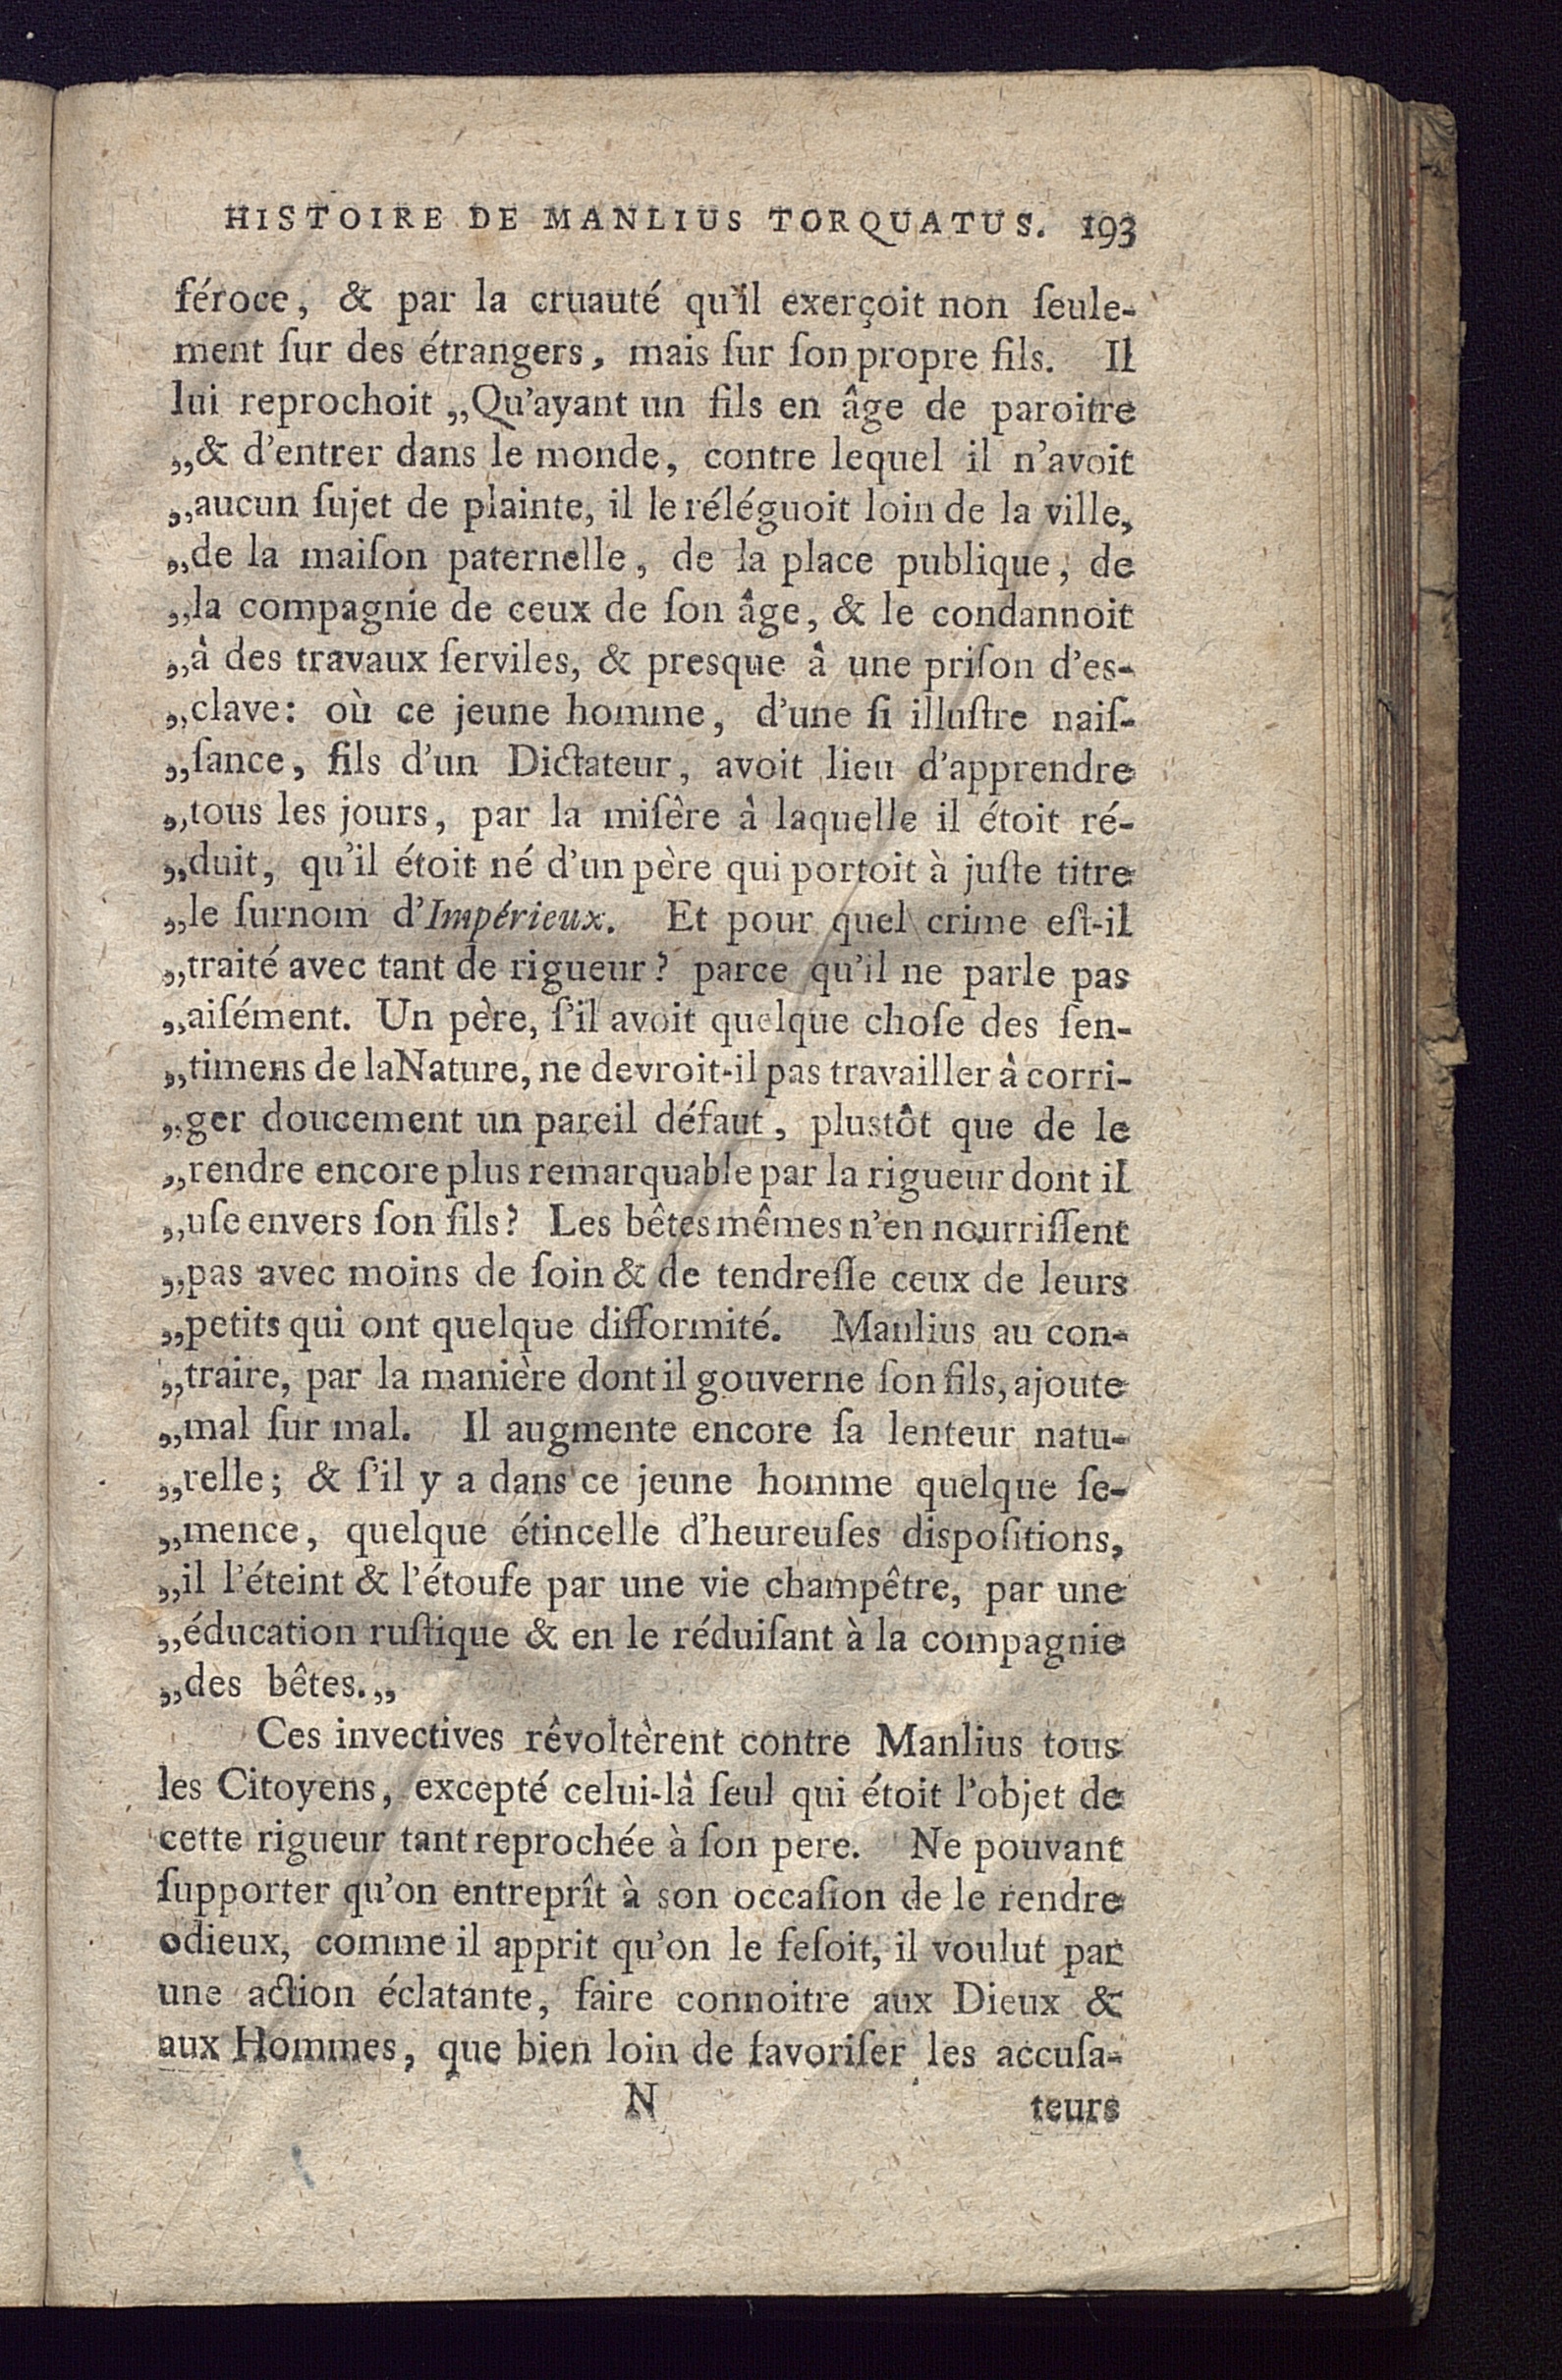 HISTOIRE DE MANLIUS TORQUATUS. 193
féroce, & par la cruauté qu'il exerçoit non ſeule-
ment ſur des étrangers, mais ſur ſon propre fils. Il
lui reprochoit „Qu'ayant un fils en âge de paroitre
„& d'entrer dans le monde, contre lequel il n'avoit
„aucun ſujet de plainte, il le réléguoit loin de la ville,
„de la maiſon paternelle, de la place publique, de
„la compagnie de ceux de ſon âge, & le condannoit
„à des travaux ſerviles, & presque à une priſon d'es-
„clave: où ce jeune homme, d'une ſi illuſtre naiſ-
„ſance, fils d'un Dictateur, avoit lieu d'apprendre
„tous les jours, par la miſère à laquelle il étoit ré-
„duit, qu'il étoit né d'un père qui portoit à juſte titre
„le ſurnom d'Impérieux. Et pour quel crime eſt-il
„traité avec tant de rigueur? parce qu'il ne parle pas
„aiſément. Un père, ſ'il avoit quelque choſe des ſen-
„timens de laNature, ne devroit-il pas travailler à corri-
„ger doucement un pareil défaut, plustôt que de le
„rendre encore plus remarquable par la rigueur dont il
„uſe envers ſon fils? Les bêtes mêmes n'en nourriſſent
„pas avec moins de ſoin & de tendreſſe ceux de leurs
„petits qui ont quelque difformité. Manlius au con-
„traire, par la manière dont il gouverne ſon fils, ajoute
„mal ſur mal. Il augmente encore ſa lenteur natu-
„relle; & ſ'il y a dans ce jeune homme quelque ſe-
„mence, quelque étincelle d'heureuſes dispoſitions,
„il l'éteint & l'étoufe par une vie champêtre, par une
„éducation ruſtique & en le réduiſant à la compagnie
„des bêtes.„
Ces invectives rêvoltèrent contre Manlius tous
les Citoyens, excepté celui-là ſeul qui étoit l'objet de
cette rigueur tant reprochée à ſon pere. Ne pouvant
ſupporter qu'on entreprît à son occaſion de le rendre
odieux, comme il apprit qu'on le feſoit, il voulut par
une action éclatante, faire connoitre aux Dieux &
aux Hommes, que bien loin de favoriſer les accuſa-
N teurs